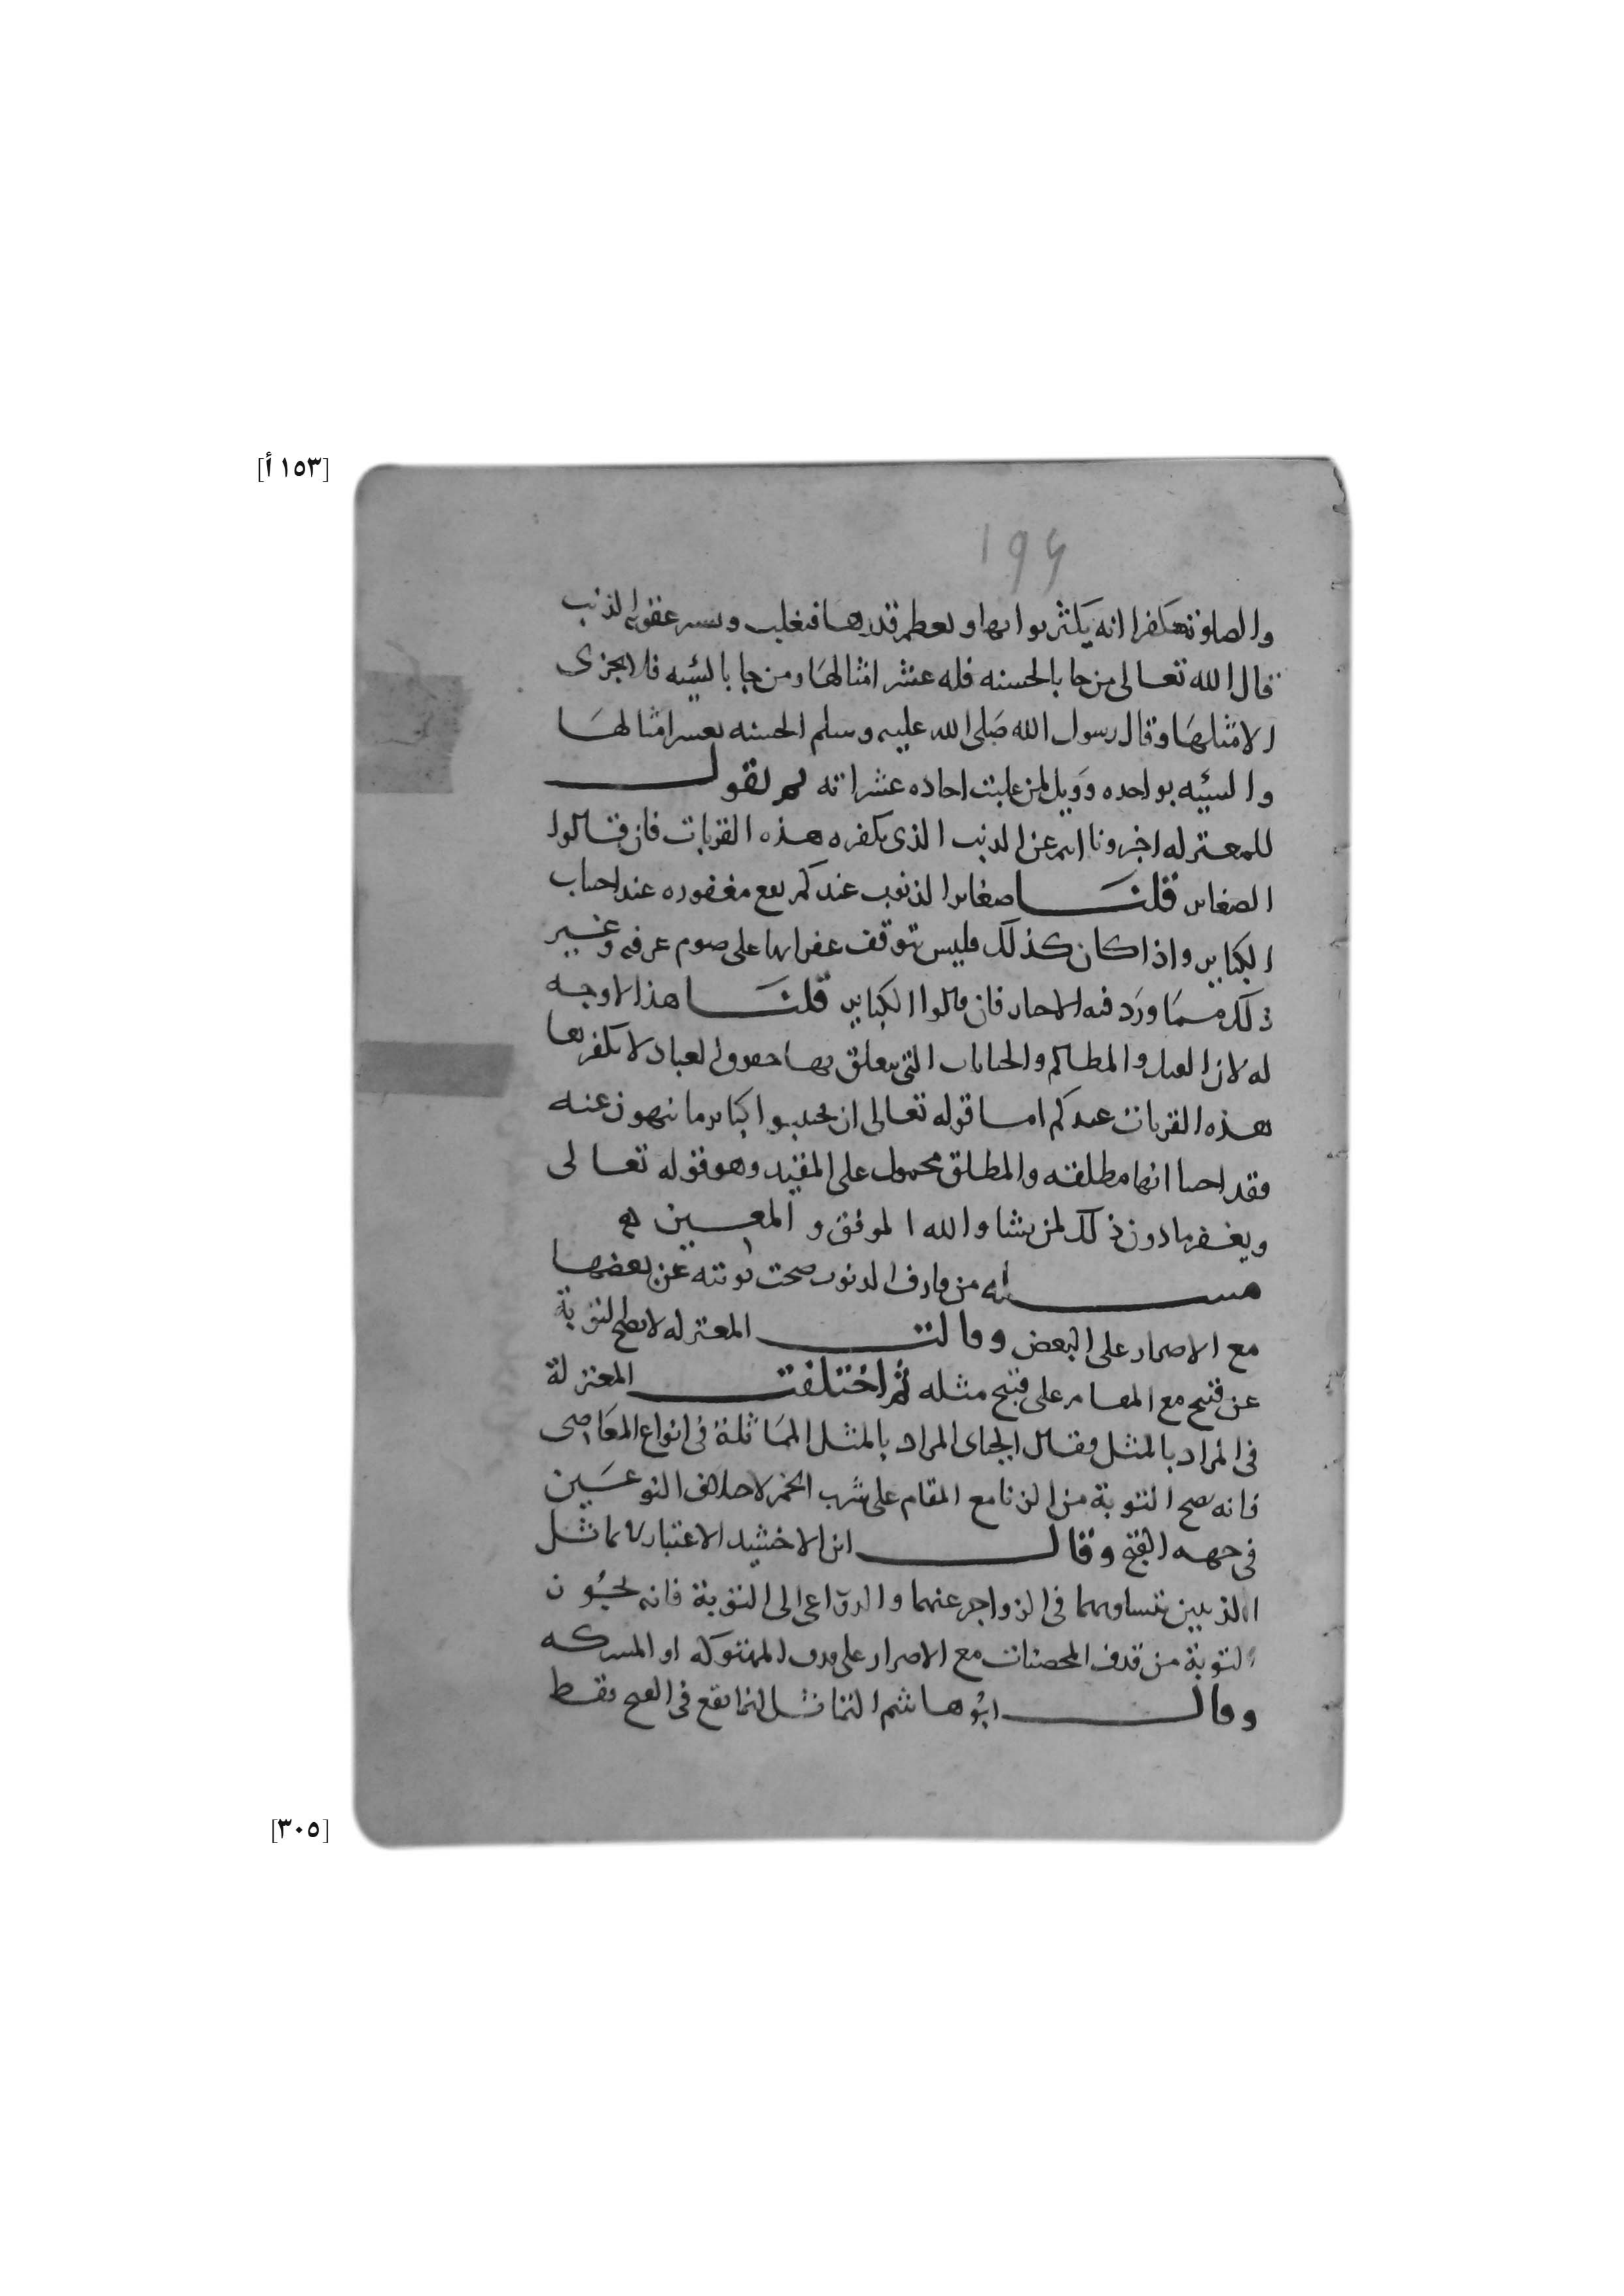 [١٥٣ أ]
١٩٤
والصلوة تكفرا انه يكثر ثوابها ويعظم قدرها فيغلب ويستر عقوبه الذنب
قال الله تعالى من جا بالحسنه فله عشر امثالها ومن جا بالسيئه فلا يجزى
الا مثلها وقال رسول الله صلى الله عليه وسلم الحسنه بعشر امثالها
والسيئه بواحده وويل لمن غلبت احاده عشراته ثم نقول
للمعتزله اخبرونا انتم عن الذنب الذى يكفره هذه القربات فان قالوا
الصغاير قلنا صغاير الذنوب عندكم تقع مغفوره عند اجتناب
الكباير واذا كان كذلك فليس تتوقف غفرانها على صوم عرفه وغير
ذلك مما ورد فيه الاخبار فان قالوا الكباير قلنا هذا لا وجه
له لان القتل والمظالم والجنايات التى يتعلق بها حقوق العباد لا تكفر بها
هذه القربات عندكم اما قوله تعالى ان تجتنبوا كباير ما تنهون عنه
فقد اجبنا انها مطلقه والمطلق محمول على المقيد وهو قوله تعالى
ويغفر ما دون ذلك لمن يشا والله الموفق والمعين
مسله من قارف الذنوب صحت توبته عن بعضها
مع الاصرار على البعض وقالت المعتزله لا تصح التوبة
عن قبيح مع المقام على قبيح مثله ثم اختلفت المعتزلة
فى المراد بالمثل فقال الجباى المراد بالمثل المماثلة فى انواع المعاصى
فانه تصح التوبة من الزنا مع المقام على شرب الخمر لاختلاف النوعين
فى جهه القبح وقال ابن الاخشيد الاعتبار بتماثل
الذنبين تساويهما فى الزواجر عنهما والدواعى الى التوبة فانه يجوز
التوبة من قذف المحصنات مع الاصرار على قذف المهتوكه او المشركه
وقال ابو هاشم التماثل انما يقع فى القبح فقط
[٣٠٥]